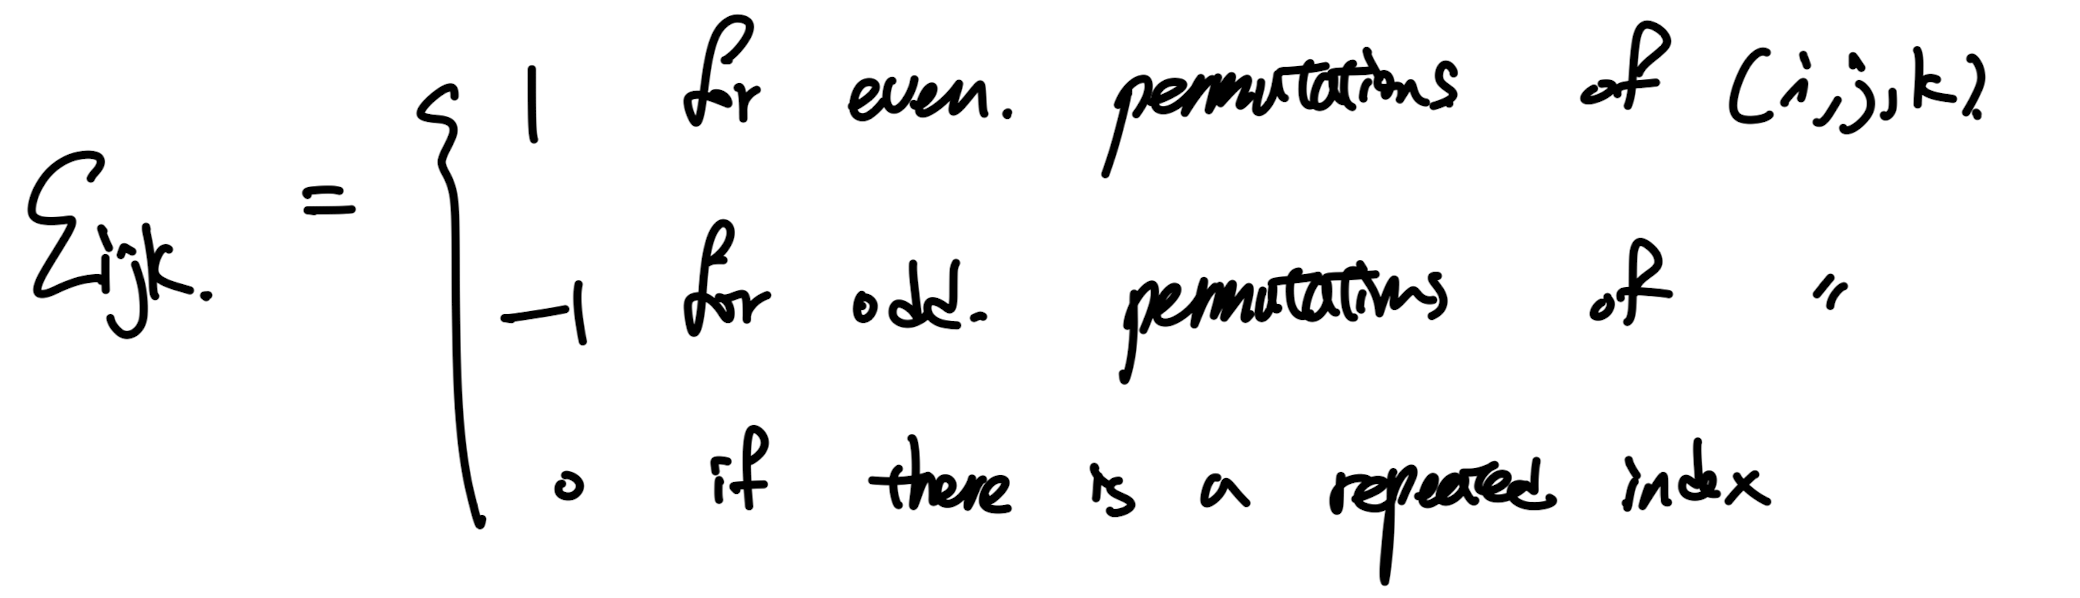 εijk. = { 1 for even. permutations of (i,j,k).
-1 for odd. permutations of "
0 if there is a repeated index